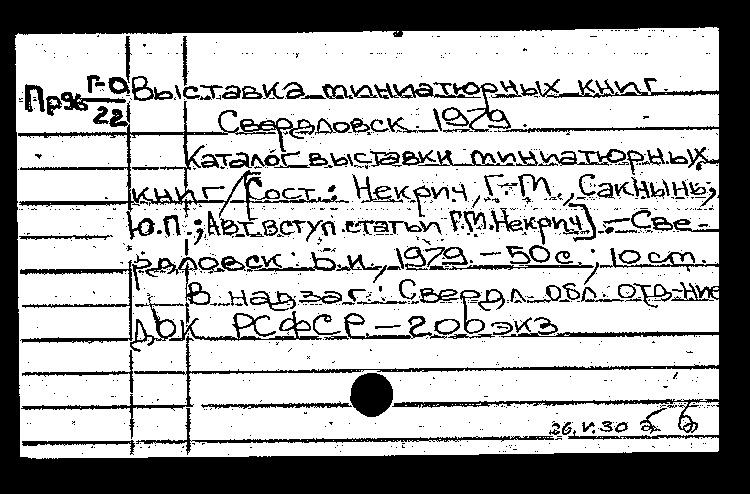 Пр96 Г-О/22
Выставка миниатюрных книг.
Свердловск. 1979.
Каталог выставки миниатюрных
книг /[Сост.: Некрич, Г.М., Сакнынь,
Ю.П.; Авт. вступ. статьи Г.М. Некрич]. – Све-
рдловск: Б.и., 1979. – 50 с.; 10 см.
В надзаг.: Свердл. обл. отд-ние
ДОК РСФСР. – 200 экз
26.V.30